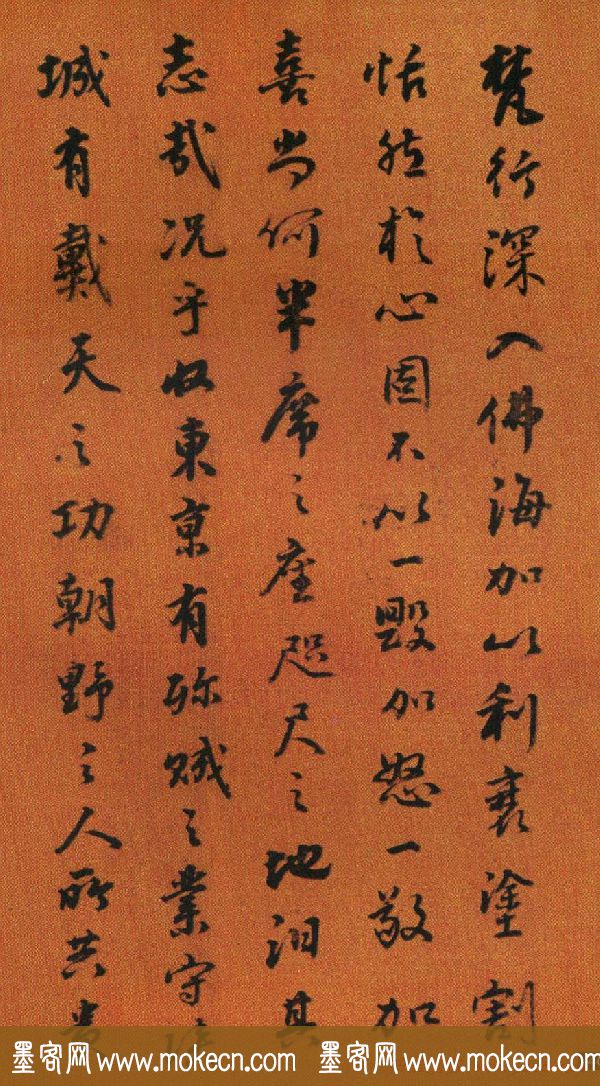 梵行深入佛海加以利衰塗割
恬然於心固不以一毀加怒一敬加
喜尚何半席之座咫尺之地汨其
志哉况乎收東京有殄賊之業守
城有戴天之功朝野之人所共貴
墨客网 www.mokecn.com 墨客网 www.mokecn.com